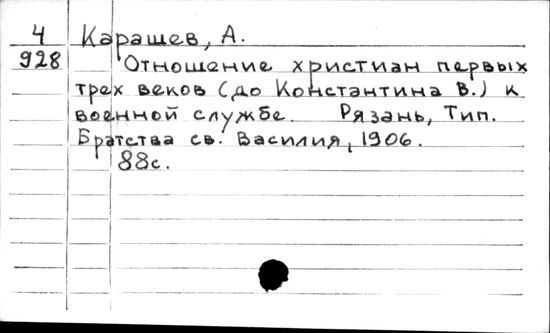 4 Карашев, А.
928 Отношение христиан первых
трех веков (до Константина В.) к
военной службе. Рязань, Тип.
Братства св. Василия, 1906.
88с.